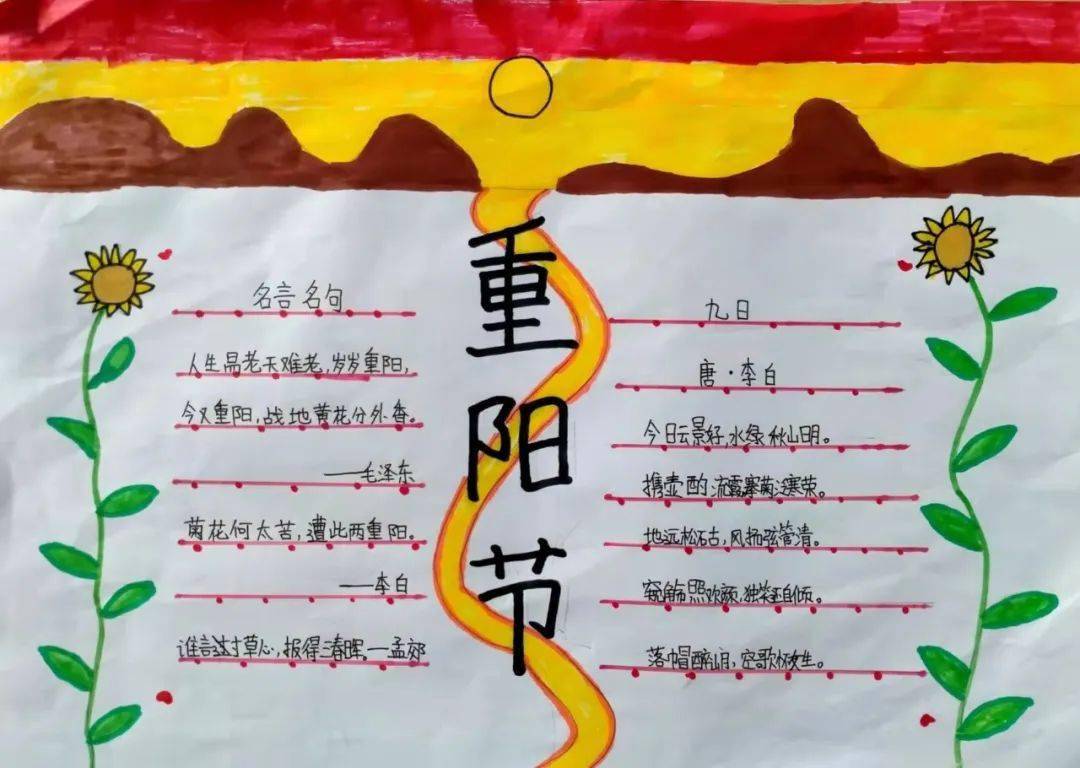 重阳节
名言名句
人生易老天难老,岁岁重阳,
今又重阳,战地黄花分外香。
——毛泽东
菊花何太苦,遭此两重阳。
——李白
谁言寸草心,报得三春晖。—孟郊
九日
唐·李白
今日云景好,水绿秋山明。
携壶酌流霞,搴菊泛寒荣。
地远松石古,风扬弦管清。
窥觞照欢颜,独笑还自倾。
落帽醉山月,空歌怀友生。